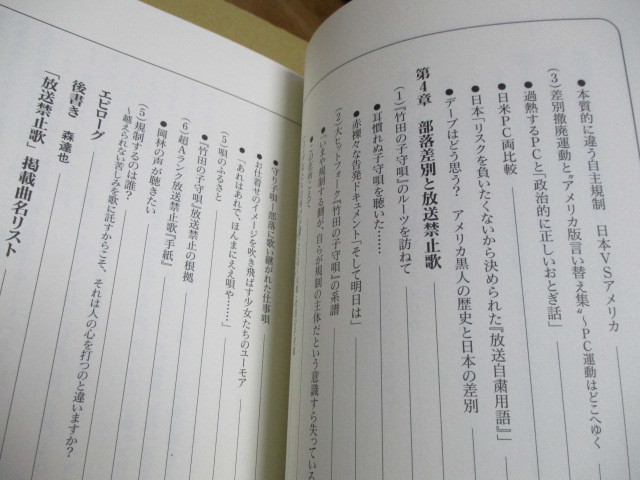 ●本質的に違う自主規制　日本VSアメリカ
(3)差別撤廃運動と〝アメリカ版言い替え集〟～PC運動はどこへゆく
●過熱するPCと『政治的に正しいおとぎ話』
●日米PC両比較
●日本「リスクを負いたくないから決められた『放送自粛用語』」
●デーブはどう思う？　アメリカ黒人の歴史と日本の差別
第4章　部落差別と放送禁止歌
(1)『竹田の子守唄』のルーツを訪ねて
●耳慣れぬ子守唄を聴いた……
●赤裸々な告発ドキュメント「そして明日は」
(2)大ヒットフォーク『竹田の子守唄』の系譜
●「いやや規制する側が、自らが規制の主体だという意識すら失っている
●守り子唄―部落に歌い継がれた仕事唄
●お仕着せのイメージを吹き飛ばす少女たちのユーモア
●「あれはあれで、ほんまにええ唄や……」
(5)唄のふるさと
●『竹田の子守唄』放送禁止の根拠
(6)超Aランク放送禁止歌『手紙』
●岡林の声が聴きたい
(5)規制するのは誰？
～越えられない苦しみを歌に託すからこそ、それは人の心を打つのと違いますか？
エピローグ
後書き　森達也
「放送禁止歌」掲載曲名リスト